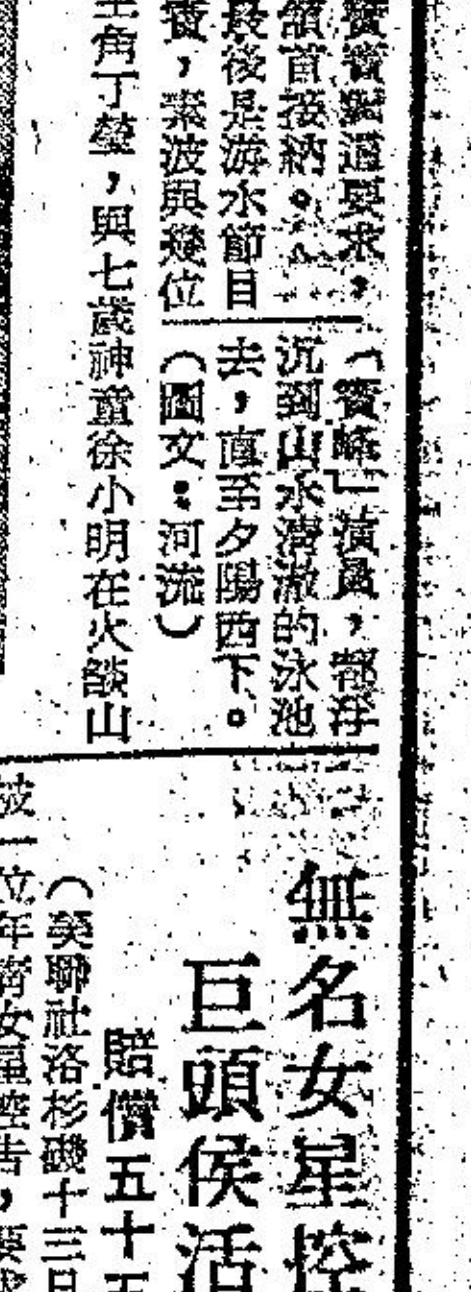 賓賓對這要求，
頷首接納。
最後是游水節目
賓，素波與幾位
「賓峰」演員，都浮
沉到山水清澈的泳池
去，直至夕陽西下。
（圖文：河流）
主角丁瑩，與七歲神童徐小明在火燄山
無名女星控
巨頭侯活
賠償五十五
（美聯社洛杉磯十三日
被一位年青女星控告，要求